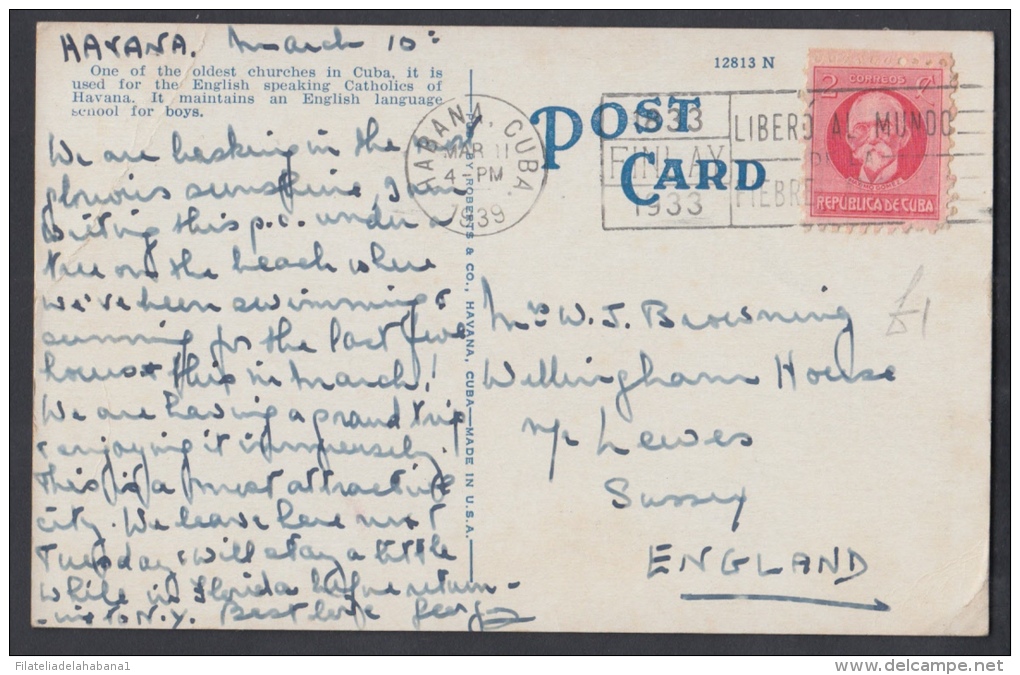 HAVANA. March 10:
One of the oldest churches in Cuba, it is
used for the English speaking Catholics of
Havana. It maintains an English language
school for boys.
We are basking in the most
glorious sunshine, I am
writing this p.c. under a
tree on the beach where
we've been swimming &
sunning for the last five
hours & this in March!
We are having a grand trip
& enjoying it immensely.
This is a most attractive
city. We leave here next
Tuesday & will stay a little
while in Florida before return-
-ing to N.Y. Best love George
12813 N
POST
CARD
HABANA, CUBA.
MAR 11
4 - PM
1939
1833
FINLAY
1933
LIBERO AL MUNDO
FIEBRE
2 CORREOS
REPUBLICA DE CUBA
PUB. BY ROBERTS & CO., HAVANA, CUBA—MADE IN U.S.A.
Mrs W. J. Browning
Willingham House
Nr Lewes
Sussex
ENGLAND
£1
Filateliadelahabana1
www.delcampe.net